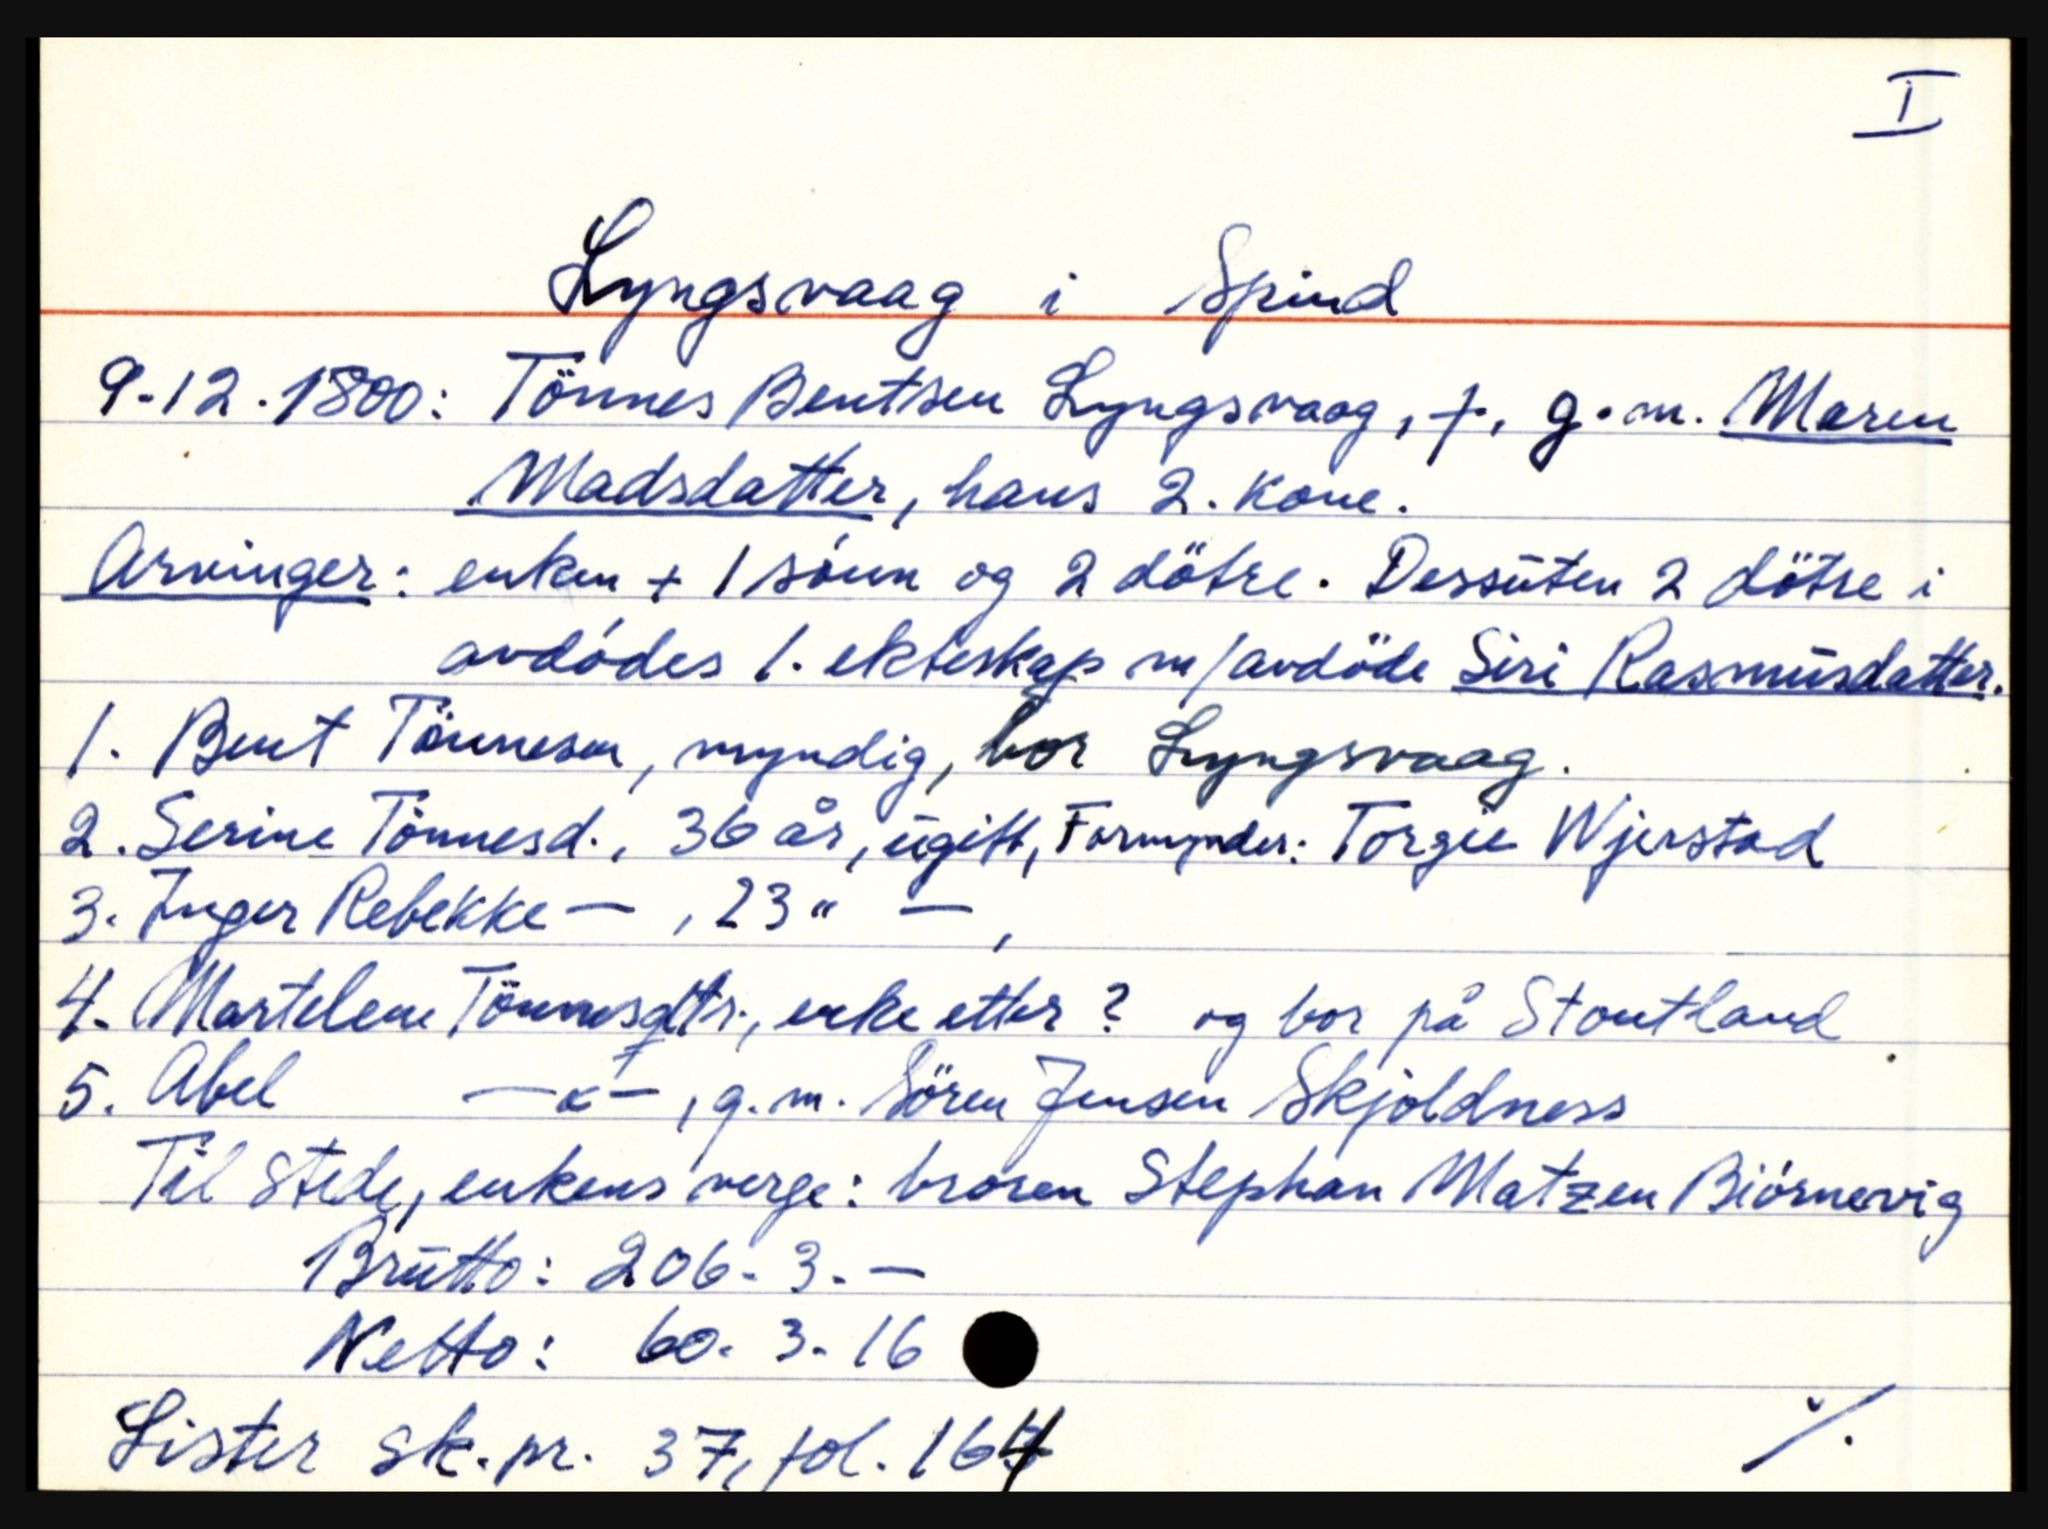 I
Lyngsvaag i Spind
9-12.1800: Tönnes Bentsen Lyngsvaag, †, g.m. Maren
Madsdatter, hans 2. kone.
Arvinger: enken + 1 sónn og 2 dötre. Dessuten 2 dötre i
avdódes 1. ekteskap m/avdöde Siri Rasmusdatter.
1. Bent Tönnesen, myndig, bor Lyngsvaag.
2. Serine Tönnesd., 36 år, ugift, Formynder: Torgie Wjerstad
3. Inger Rebekke — , 23 " — ,
4. Martelene Tönnesdtr., enke etter ? og bor på Stoutland
5. Abel —"— , g.m. Sören Jensen Skjoldness
Til stede, enkens verge: broren Stephan Matzen Biórnevig
Brutto: 206. 3. —
Netto: 60. 3. 16
Lister sk.pr. 37, fol. 164
./.